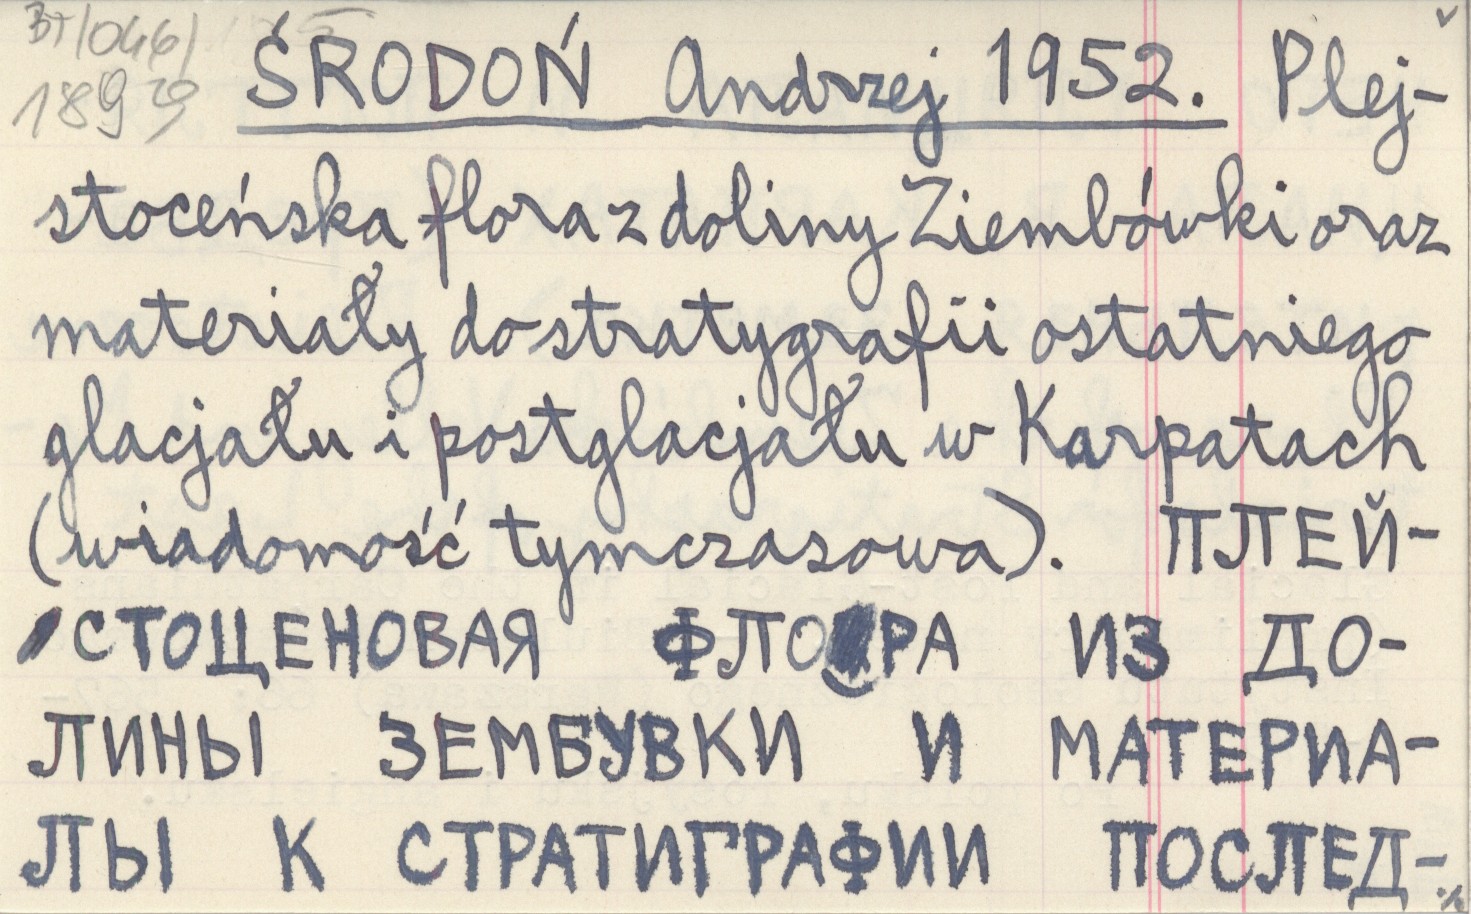 BT/046/
1893
ŚRODOŃ Andrzej 1952. Plej-
stoceńska flora z doliny Ziembówki oraz
materiały do stratygrafii ostatniego
glacjału i postglacjału w Karpatach
(wiadomość tymczasowa). ПЛЕЙ-
СТОЦЕНОВАЯ ФЛОРА ИЗ ДО-
ЛИНЫ ЗЕМБУВКИ И МАТЕРИА-
ЛЫ К СТРАТИГРАФИИ ПОСЛЕД-
./.